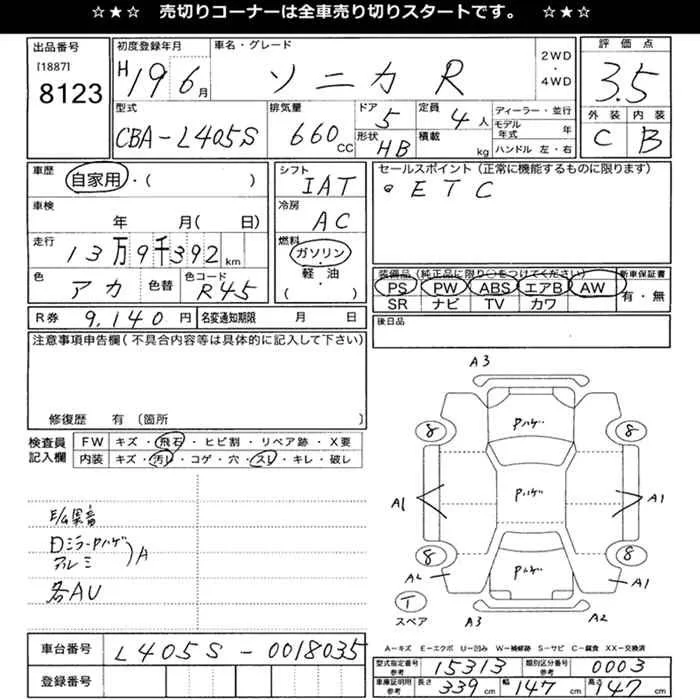 ☆★☆ 売切りコーナーは全車売り切りスタートです。 ☆★☆
出品番号
[1887]
8123
初度登録年月
H19年6月
車名・グレード
ソニカ R
2WD
・
4WD
評価点
3.5
外装 内装
C B
型式
CBA-L405S
排気量
660CC
ドア
5
形状
HB
定員
4人
積載
kg
ディーラー・並行
モデル年式 年
ハンドル 左・右
車歴
自家用・( )
車検
年 月( 日)
走行
13万9千392km
色
アカ
色替
色コード
R45
シフト
IAT
冷房
AC
燃料
ガソリン
・
軽・油
( )
セールスポイント(正常に機能するものに限ります)
ETC
装備品(純正品に限り○をつけてください)
PS PW ABS エアB AW
SR ナビ TV カワ
新車保証書
有・無
後日品
R券 9,140円
名変通知期限 月 日
注意事項申告欄(不具合内容等は具体的に記入して下さい)
修復歴 有 〔箇所 〕
検査員
記入欄
FW キズ・飛石・ヒビ割・リペア跡・X要
内装 キズ・汚レ・コゲ・穴・スレ・キレ・破レ
E/G異音
Dミラー・Pハゲ
アルミ
A
各AU
A3
Pハゲ
8 8
A1
Pハゲ
A1
8 8
A2
Pハゲ
A1
T
スペア
A3
A2
A-キズ E-エクボ U-凹み W-補修跡 S-サビ C-腐食 XX-交換済
車台番号
L405S-0018035
登録番号
型式指定番号
参考
15313
類別区分番号
参考
0003
車庫証明用
参考
長さ 339cm 幅 147cm 高さ 147cm